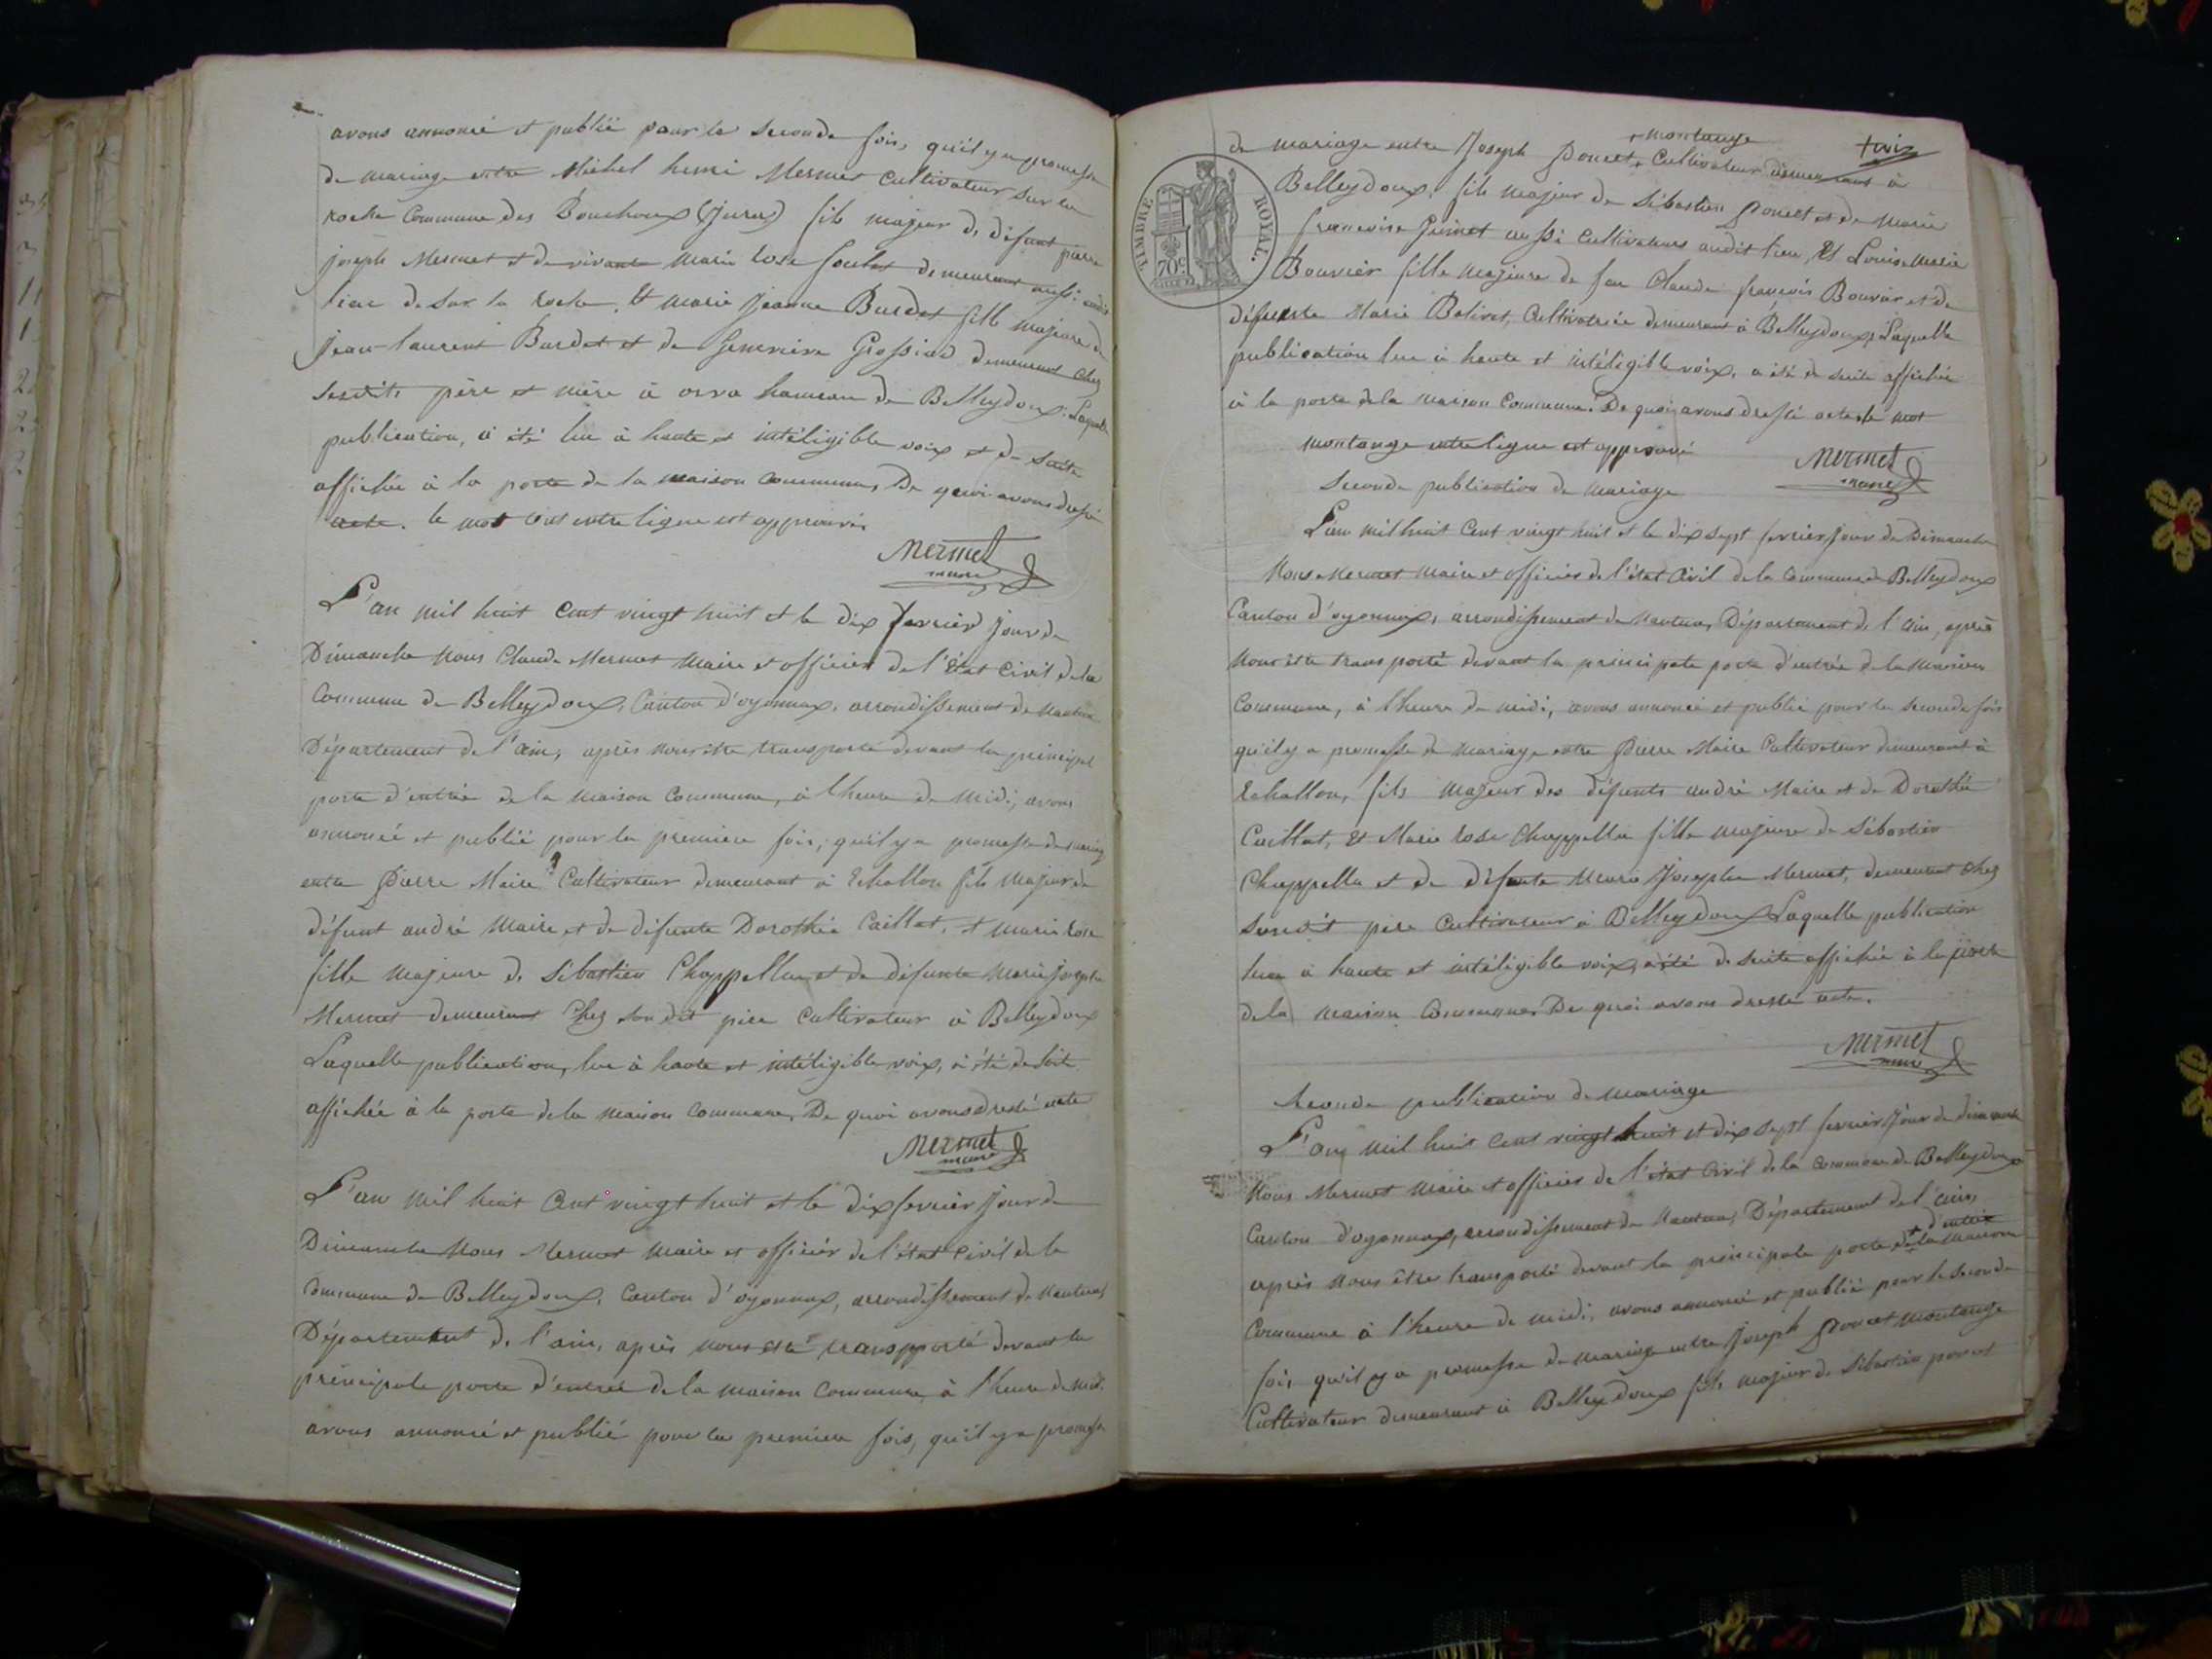 avons annoncé et publié pour la seconde fois, qu'il y a promesse
de mariage entre Michel henri Mermet cultivateur sur la
roche Commune des Bouchoux (Jura) fils majeur de défunt pierre
joseph Mermet et de vivante Marie rose demeurant aussi audit
lieu de sur la roche, Et Marie Jeanne Burdet fille majeure de
Jean-laurent Burdet et de Genevieve Grossiord demeurant chez
sesdits père et mère à orva hameau de Belleydoux, Laquelle
publication, a été lue à haute et intéligible voix et de suite
affichée à la porte de la maison commune, De quoi avons dressé
acte. le mot entre ligne est approuvé.
Mermet
maire
L'an mil huit cent vingt huit et le dix fevrier jour de
Dimanche Nous Claude Mermet Maire et officier de l'état civil de la
Commune de Belleydoux, Canton d'oyonnax, arrondissement de Nantua
Département de l'ain, après nous être transporté devant la principal
porte d'entrée de la maison commune, à l'heure de midi, avons
annoncé et publié pour la premiere fois, qu'il y a promesse de mariage
entre Pierre Maire Cultivateur demeurant à Echallon fils majeur de
défunt andré Maire et de défunte Dorothée Caillat, et Marie Rose
fille majeure de Sébastien Chappellu et de défunte Marie josephe
Mermet demeurant Chez son dit père cultivateur à Belleydoux
Laquelle publication, lue à haute et intéligible voix, a été de suite
affichée à la porte de la maison commune, De quoi avons dressé acte
Mermet
maire
L'an mil huit cent vingt huit et le dix fevrier jour de
Dimanche Nous Mermet Maire et officier de l'état civil de la
Commune de Belleydoux, Canton d'oyonnax, arrondissement de Nantua
Département de l'ain, après nous être transporté devant la
principale porte d'entrée de la maison commune, à l'heure de midi
avons annoncé et publié pour la premiere fois, qu'il y a promesse
montange
de mariage entre Joseph Poncet, Cultivateur demeurant à
TIMBRE ROYAL.
70c
Belleydoux, fils majeur de Sébastien Poncet et de Marie
francoise aussi cultivateurs audit lieu, Et Louise Marie
Bouvier fille majeure de feu Claude françois Bouvier et de
défunte Marie Bolivet, Cultivatrice demeurant à Belleydoux, Laquelle
publication lue à haute et intéligible voix, a été de suite affichée
à la porte de la maison commune. De quoi avons dressé acte le mot
montange entre ligne est approuvé
Mermet
maire
Seconde publication de mariage
L'an mil huit cent vingt huit et le dix sept fevrier jour de Dimanche
Nous Mermet Maire et officier de l'état civil de la commune de Belleydoux
Canton d'oyonnax, arrondissement de Nantua, Département de l'ain, après
nous être transporté devant la principale porte d'entrée de la maison
Commune, à l'heure de midi, avons annoncé et publié pour la seconde fois
qu'il y a promesse de mariage entre Pierre Maire Cultivateur demeurant à
Echallon, fils majeur des défunts andré Maire et de Dorothée
Caillat, Et Marie rose Chappellu fille majeure de Sébastien
Chappellu et de défunte Marie Josephe Mermet, demeurant chez
sondit père cultivateur à Belleydoux Laquelle publication
lue à haute et intéligible voix, a été de suite affichée à la porte
de la maison Commune, De quoi avons dressé acte.
Mermet
maire
Seconde publication de mariage
L'an mil huit cent vingt huit et dix sept fevrier jour de dimanche
Nous Mermet Maire et officier de l'état civil de la commune de Belleydoux
Canton d'oyonnax, arrondissement de Nantua, Département de l'ain,
d'entrée
après nous être transporté devant la principale porte de la maison
Commune à l'heure de midi, avons annoncé et publié pour la seconde
fois qu'il y a promesse de mariage entre Joseph Poncet montange
Cultivateur demeurant à Belleydoux fils majeur de Sébastien poncet